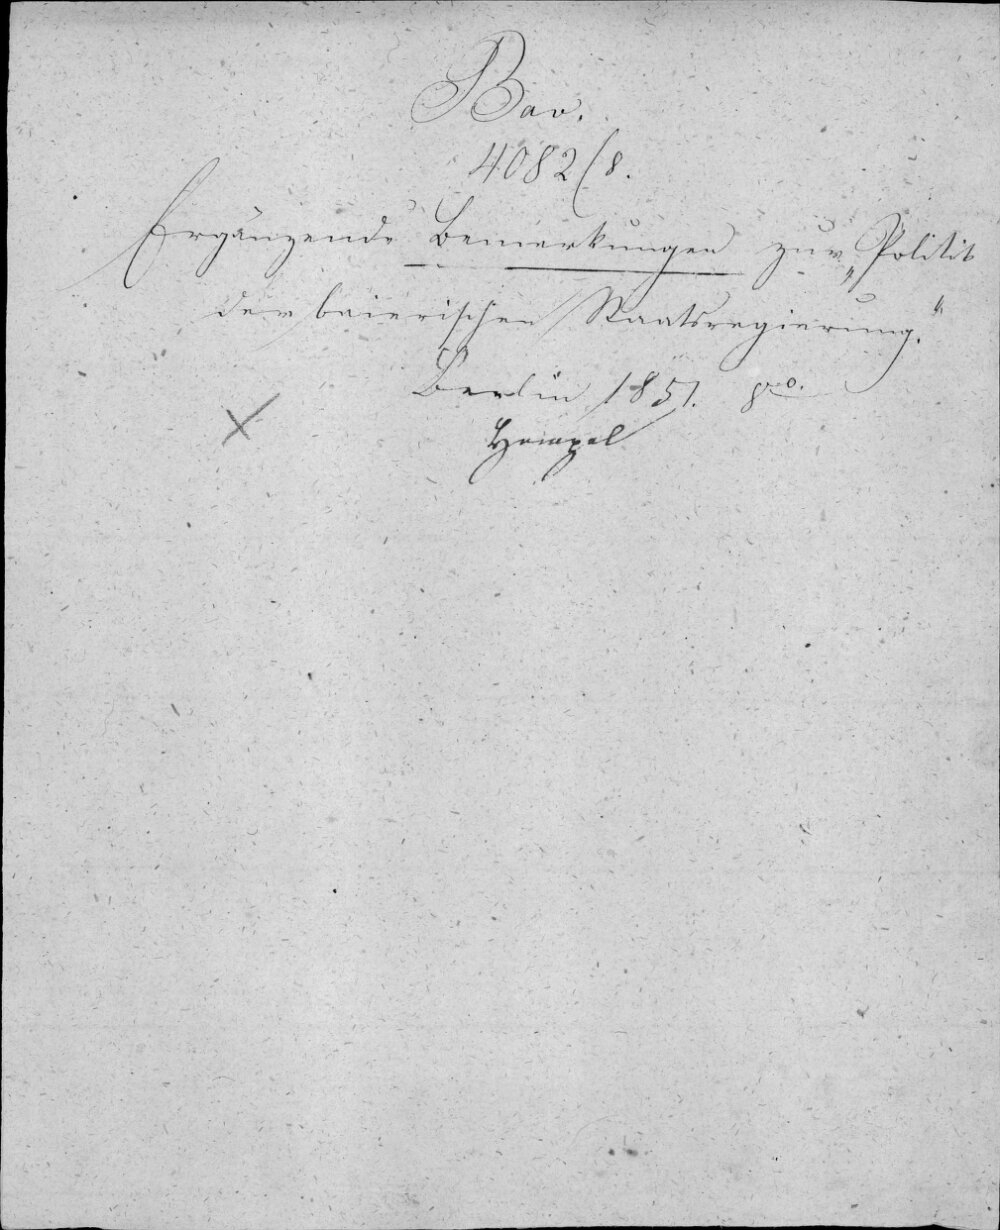 Bav.
4082/8.
Ergänzende Bemerkungen zur „Politik
der baierischen Staatsregierung.“
Berlin 1851. 8º.
Hempel